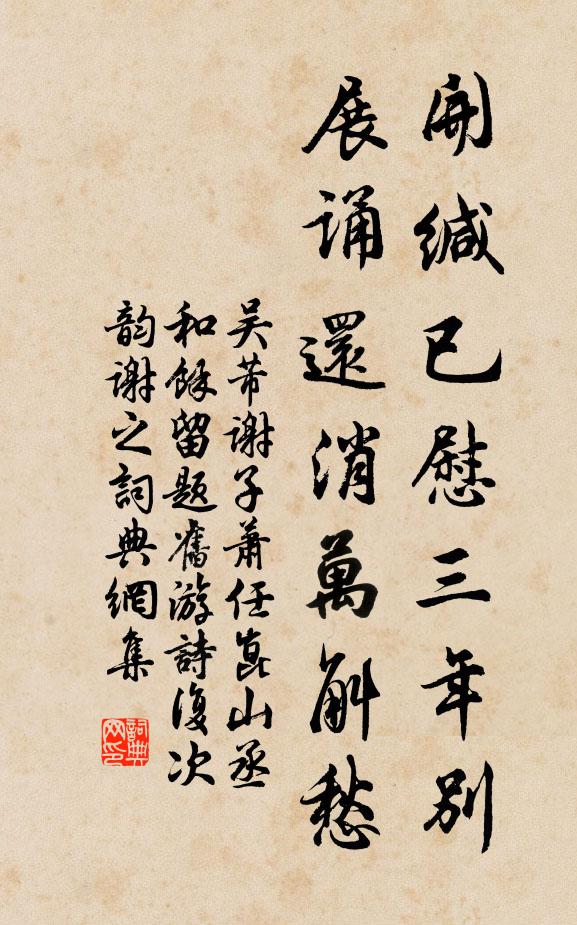 開緘已慰三年別
展誦還消萬斛愁
吴芾謝子蕭任崑山丞
和餘留題舊游詩復次
韵謝之詞典網集
詞典
网印